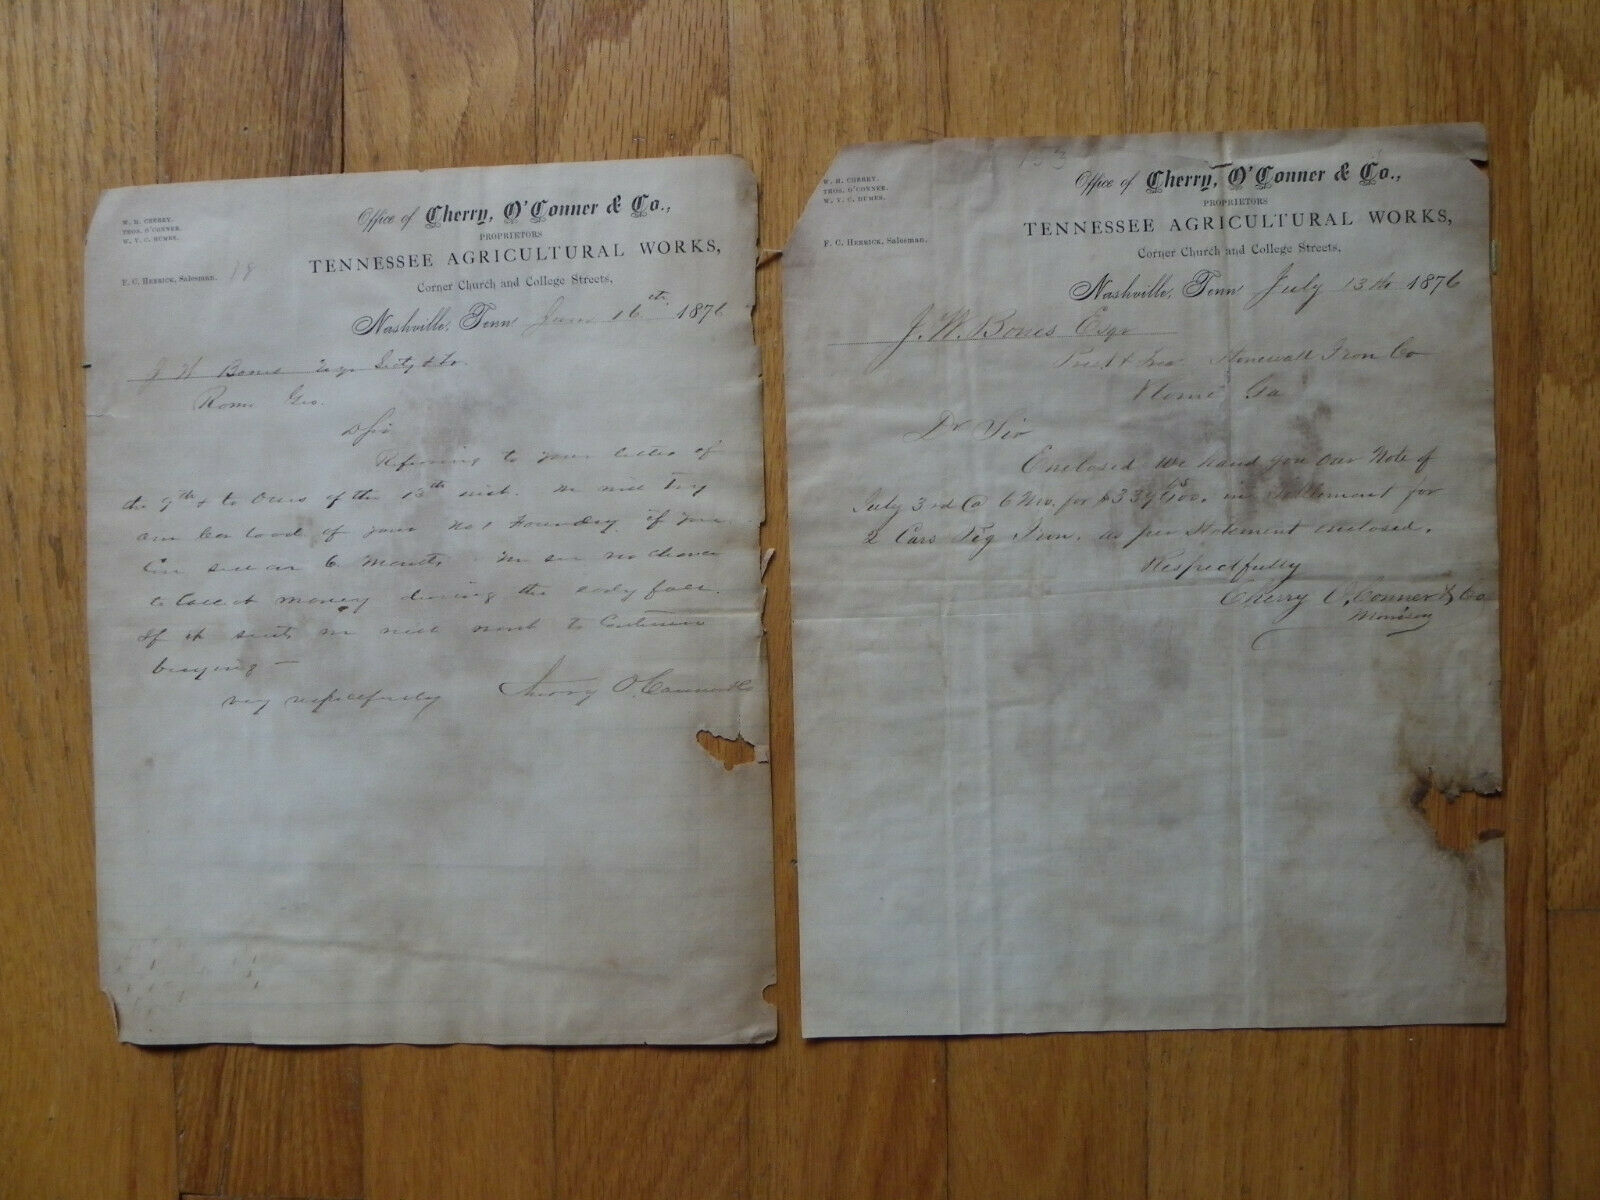 W. H. CHERRY.
THOS. O'CONNER.
W. Y. C. HUMES.
F. C. HERRICK, Salesman.
18
Office of Cherry, O'Conner & Co.,
PROPRIETORS
TENNESSEE AGRICULTURAL WORKS,
Corner Church and College Streets,
Nashville, Tenn June 16th 1876
J W Bones Esqr Secty & Co.
Rome Geo.
D Sir
Referring to your letter of
the 9th & to Ours of the 13th inst. We will try
one Car load of your No 1 Foundry if you
Can sell on 6 Months. We see no chance
to Collect money during the early fall.
If it suits we will want to Continue
buying —
very respectfully Cherry O. Conner & Co
153
W. H. CHERRY.
THOS. O'CONNER.
W. Y. C. HUMES.
F. C. HERRICK, Salesman.
Office of Cherry, O'Conner & Co.,
PROPRIETORS
TENNESSEE AGRICULTURAL WORKS,
Corner Church and College Streets,
Nashville, Tenn July 13th 1876
J. W. Bones Esqr
Sect & Trea Stonewall Iron Co
Rome Ga
Dr Sir
Enclosed we hand you Our Note of
July 3rd @ 6 Mo. for in Settlement for
2 Cars Pig Iron, as per Statement enclosed.
Respectfully
Cherry O,Conner & Co
Morrison